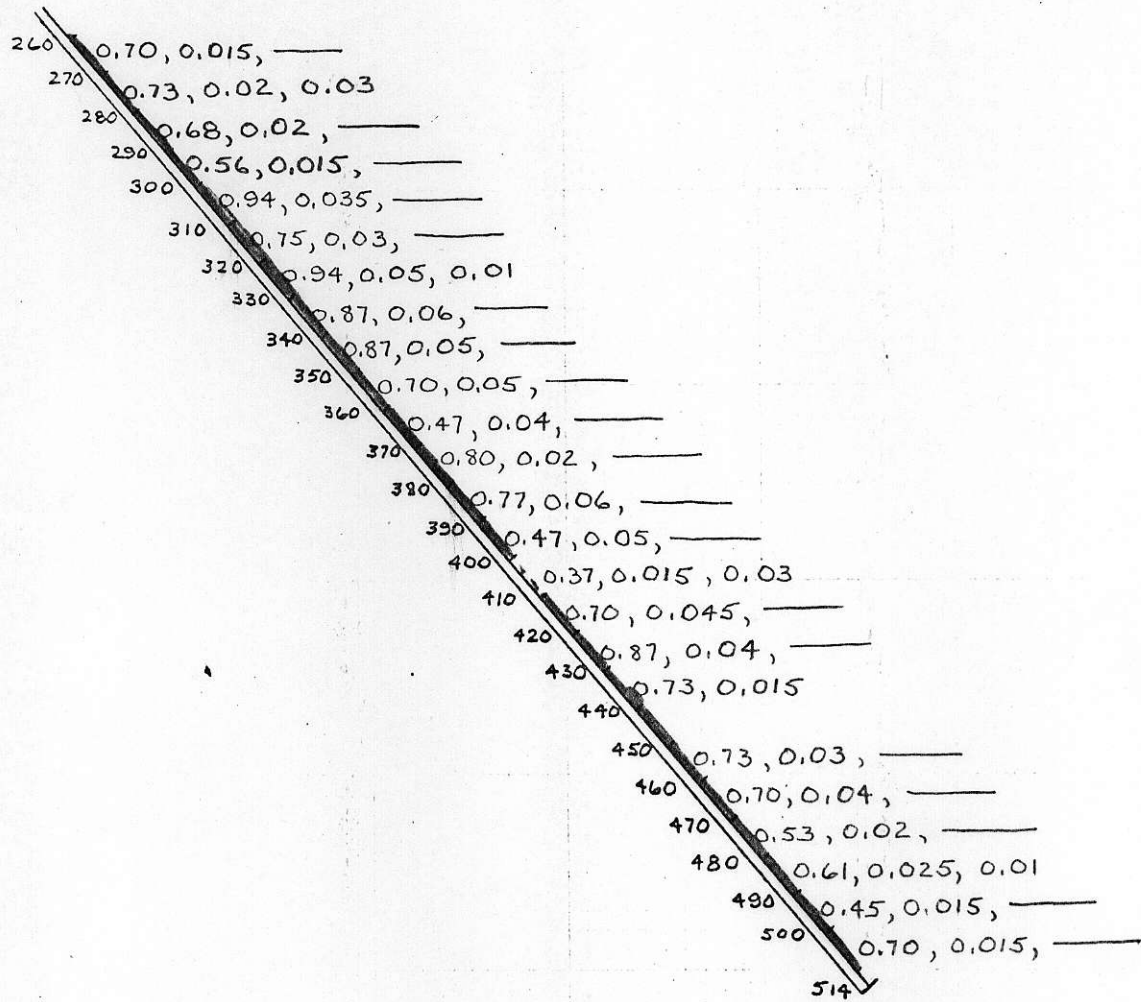 260 0.70, 0.015, ——
270 0.73, 0.02, 0.03
280 0.68, 0.02, ——
290 0.56, 0.015, ——
300 0.94, 0.035, ——
310 0.75, 0.03, ——
320 0.94, 0.05, 0.01
330 0.87, 0.06, ——
340 0.87, 0.05, ——
350 0.70, 0.05, ——
360 0.47, 0.04, ——
370 0.80, 0.02, ——
380 0.77, 0.06, ——
390 0.47, 0.05, ——
400 0.37, 0.015, 0.03
410 0.70, 0.045, ——
420 0.87, 0.04, ——
430 0.73, 0.015
440
450 0.73, 0.03, ——
460 0.70, 0.04, ——
470 0.53, 0.02, ——
480 0.61, 0.025, 0.01
490 0.45, 0.015, ——
500 0.70, 0.015, ——
514